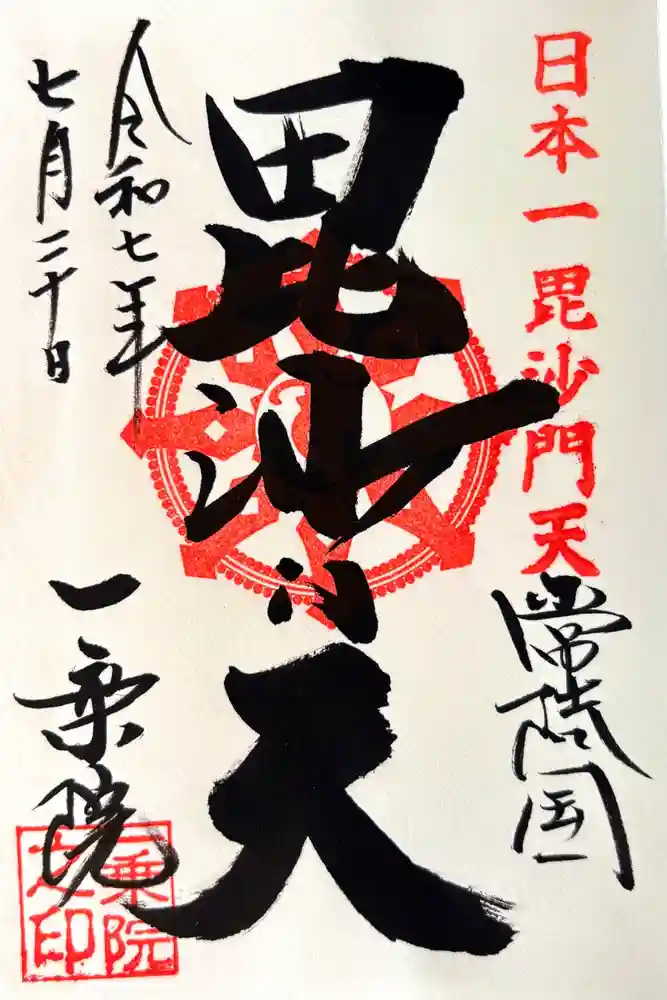 日本一毘沙門天
常陸国
毘沙門天
令和七年
七月二十日
一乗院
一乗院
之印